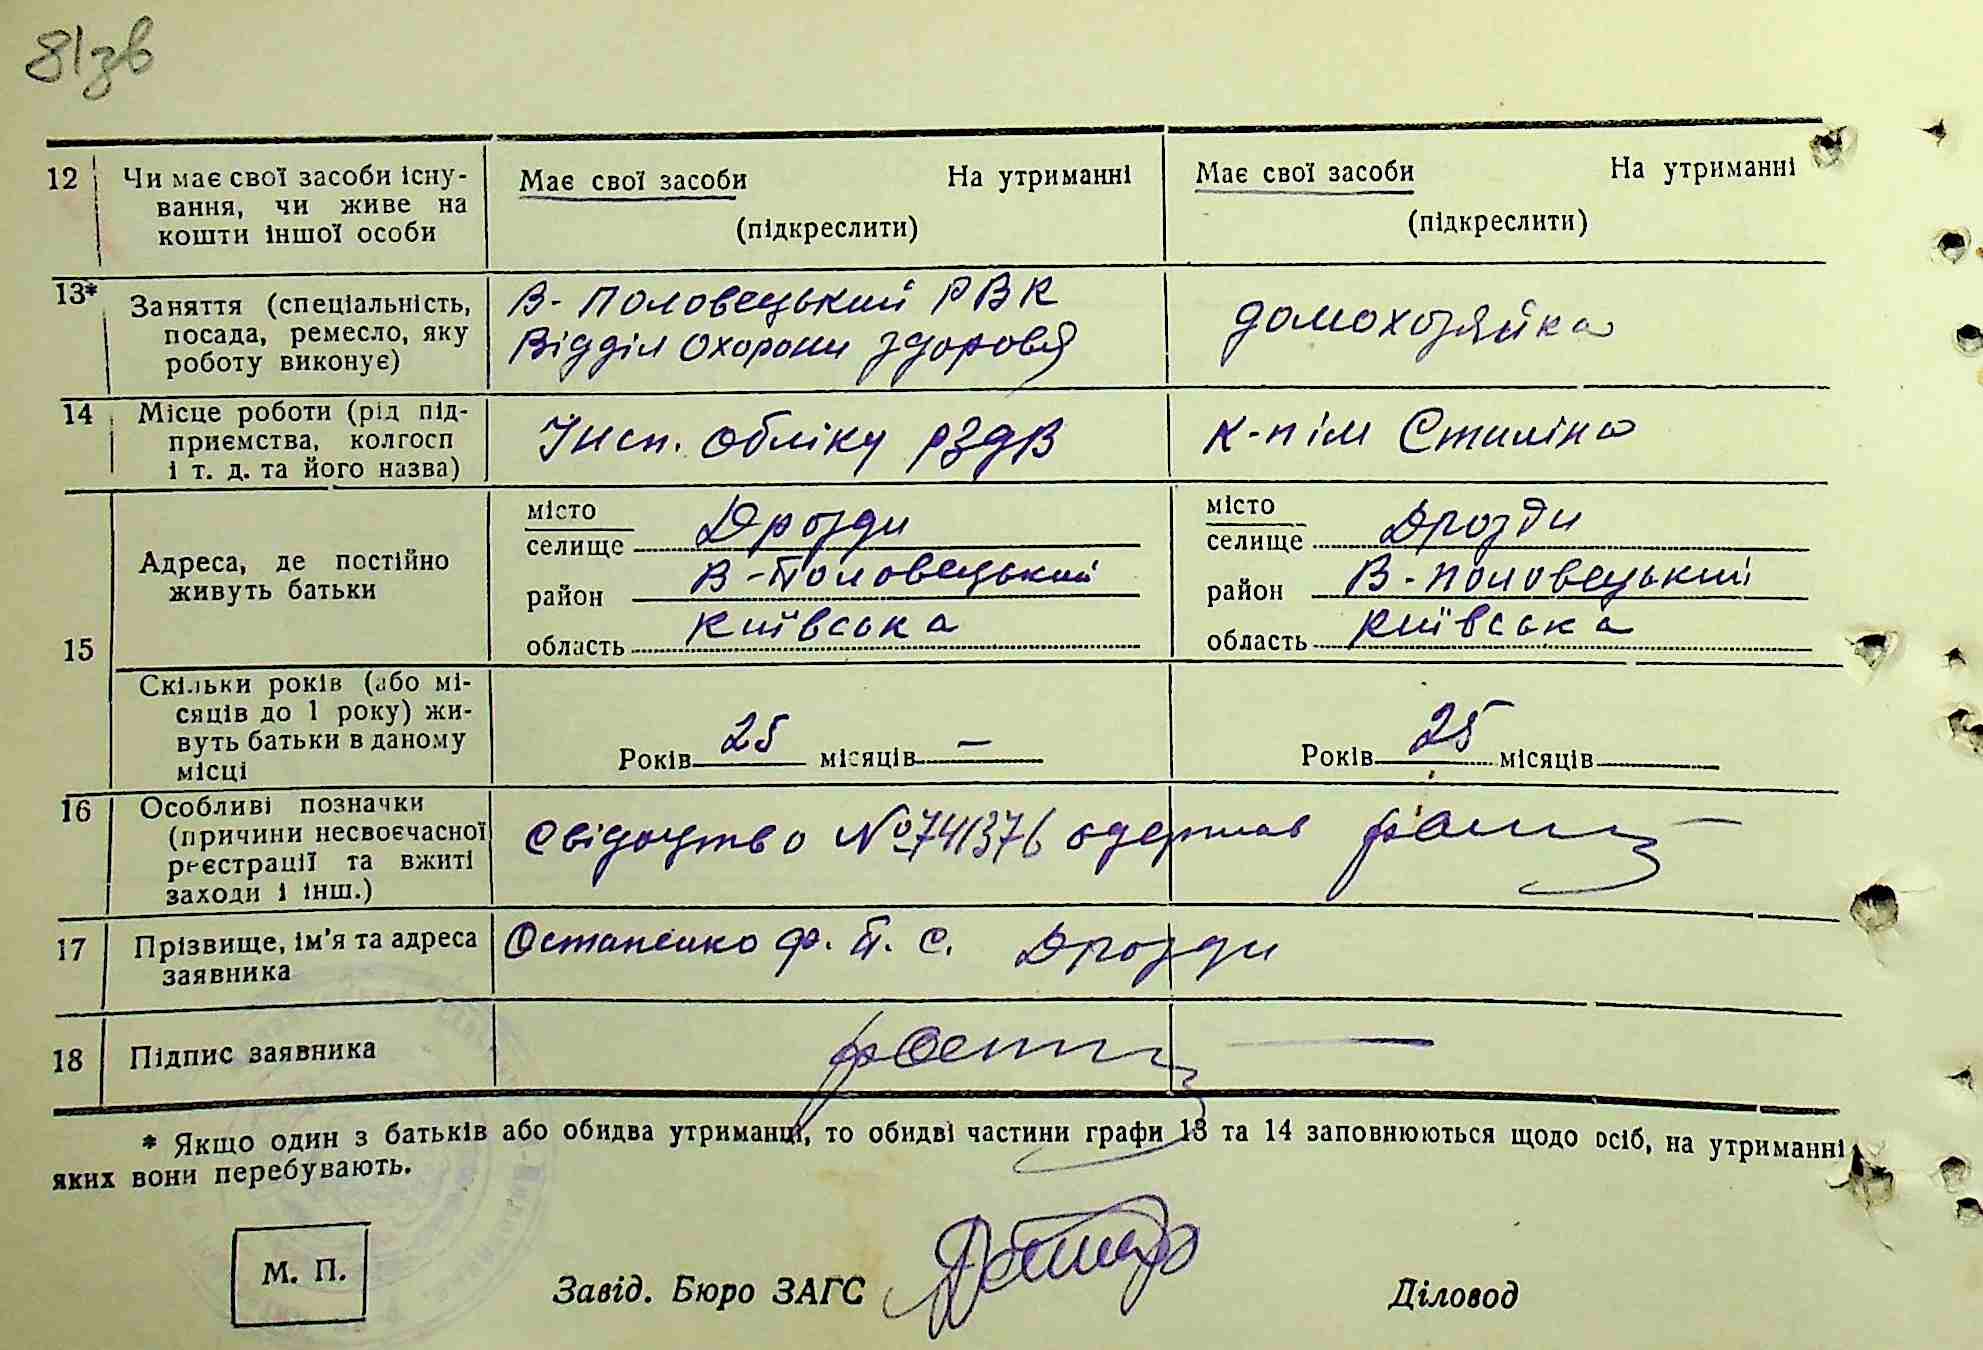 81зв
12 Чи має свої засоби існу-
вання, чи живе на
кошти іншої особи
Має свої засоби На утриманні
(підкреслити)
Має свої засоби На утриманні
(підкреслити)
13* Заняття (спеціальність,
посада, ремесло, яку
роботу виконує)
В-Половецький РВК
Відділ Охорони здоровя
домохозяйка
14 Місце роботи (рід під-
приємства, колгосп
і т. д. та його назва)
Інсп. обліку РЗДВ
к-п ім Сталіна
15 Адреса, де постійно
живуть батьки
місто
селище Дрозди
район В-Половецький
область Київська
місто
селище Дрозди
район В-Половецький
область Київська
Скільки років (або мі-
сяців до 1 року) жи-
вуть батьки в даному
місці
Років 25 місяців —
Років 25 місяців
16 Особливі позначки
(причини несвоєчасної
реєстрації та вжиті
заходи і інш.)
Свідоцтво №741376 одержав
17 Прізвище, ім'я та адреса
заявника
Остапенко Ф. П. С. Дрозди
18 Підпис заявника
* Якщо один з батьків або обидва утриманці, то обидві частини графи 13 та 14 заповнюються щодо осіб, на утриманні
яких вони перебувають.
М. П.
Завід. Бюро ЗАГС
Діловод